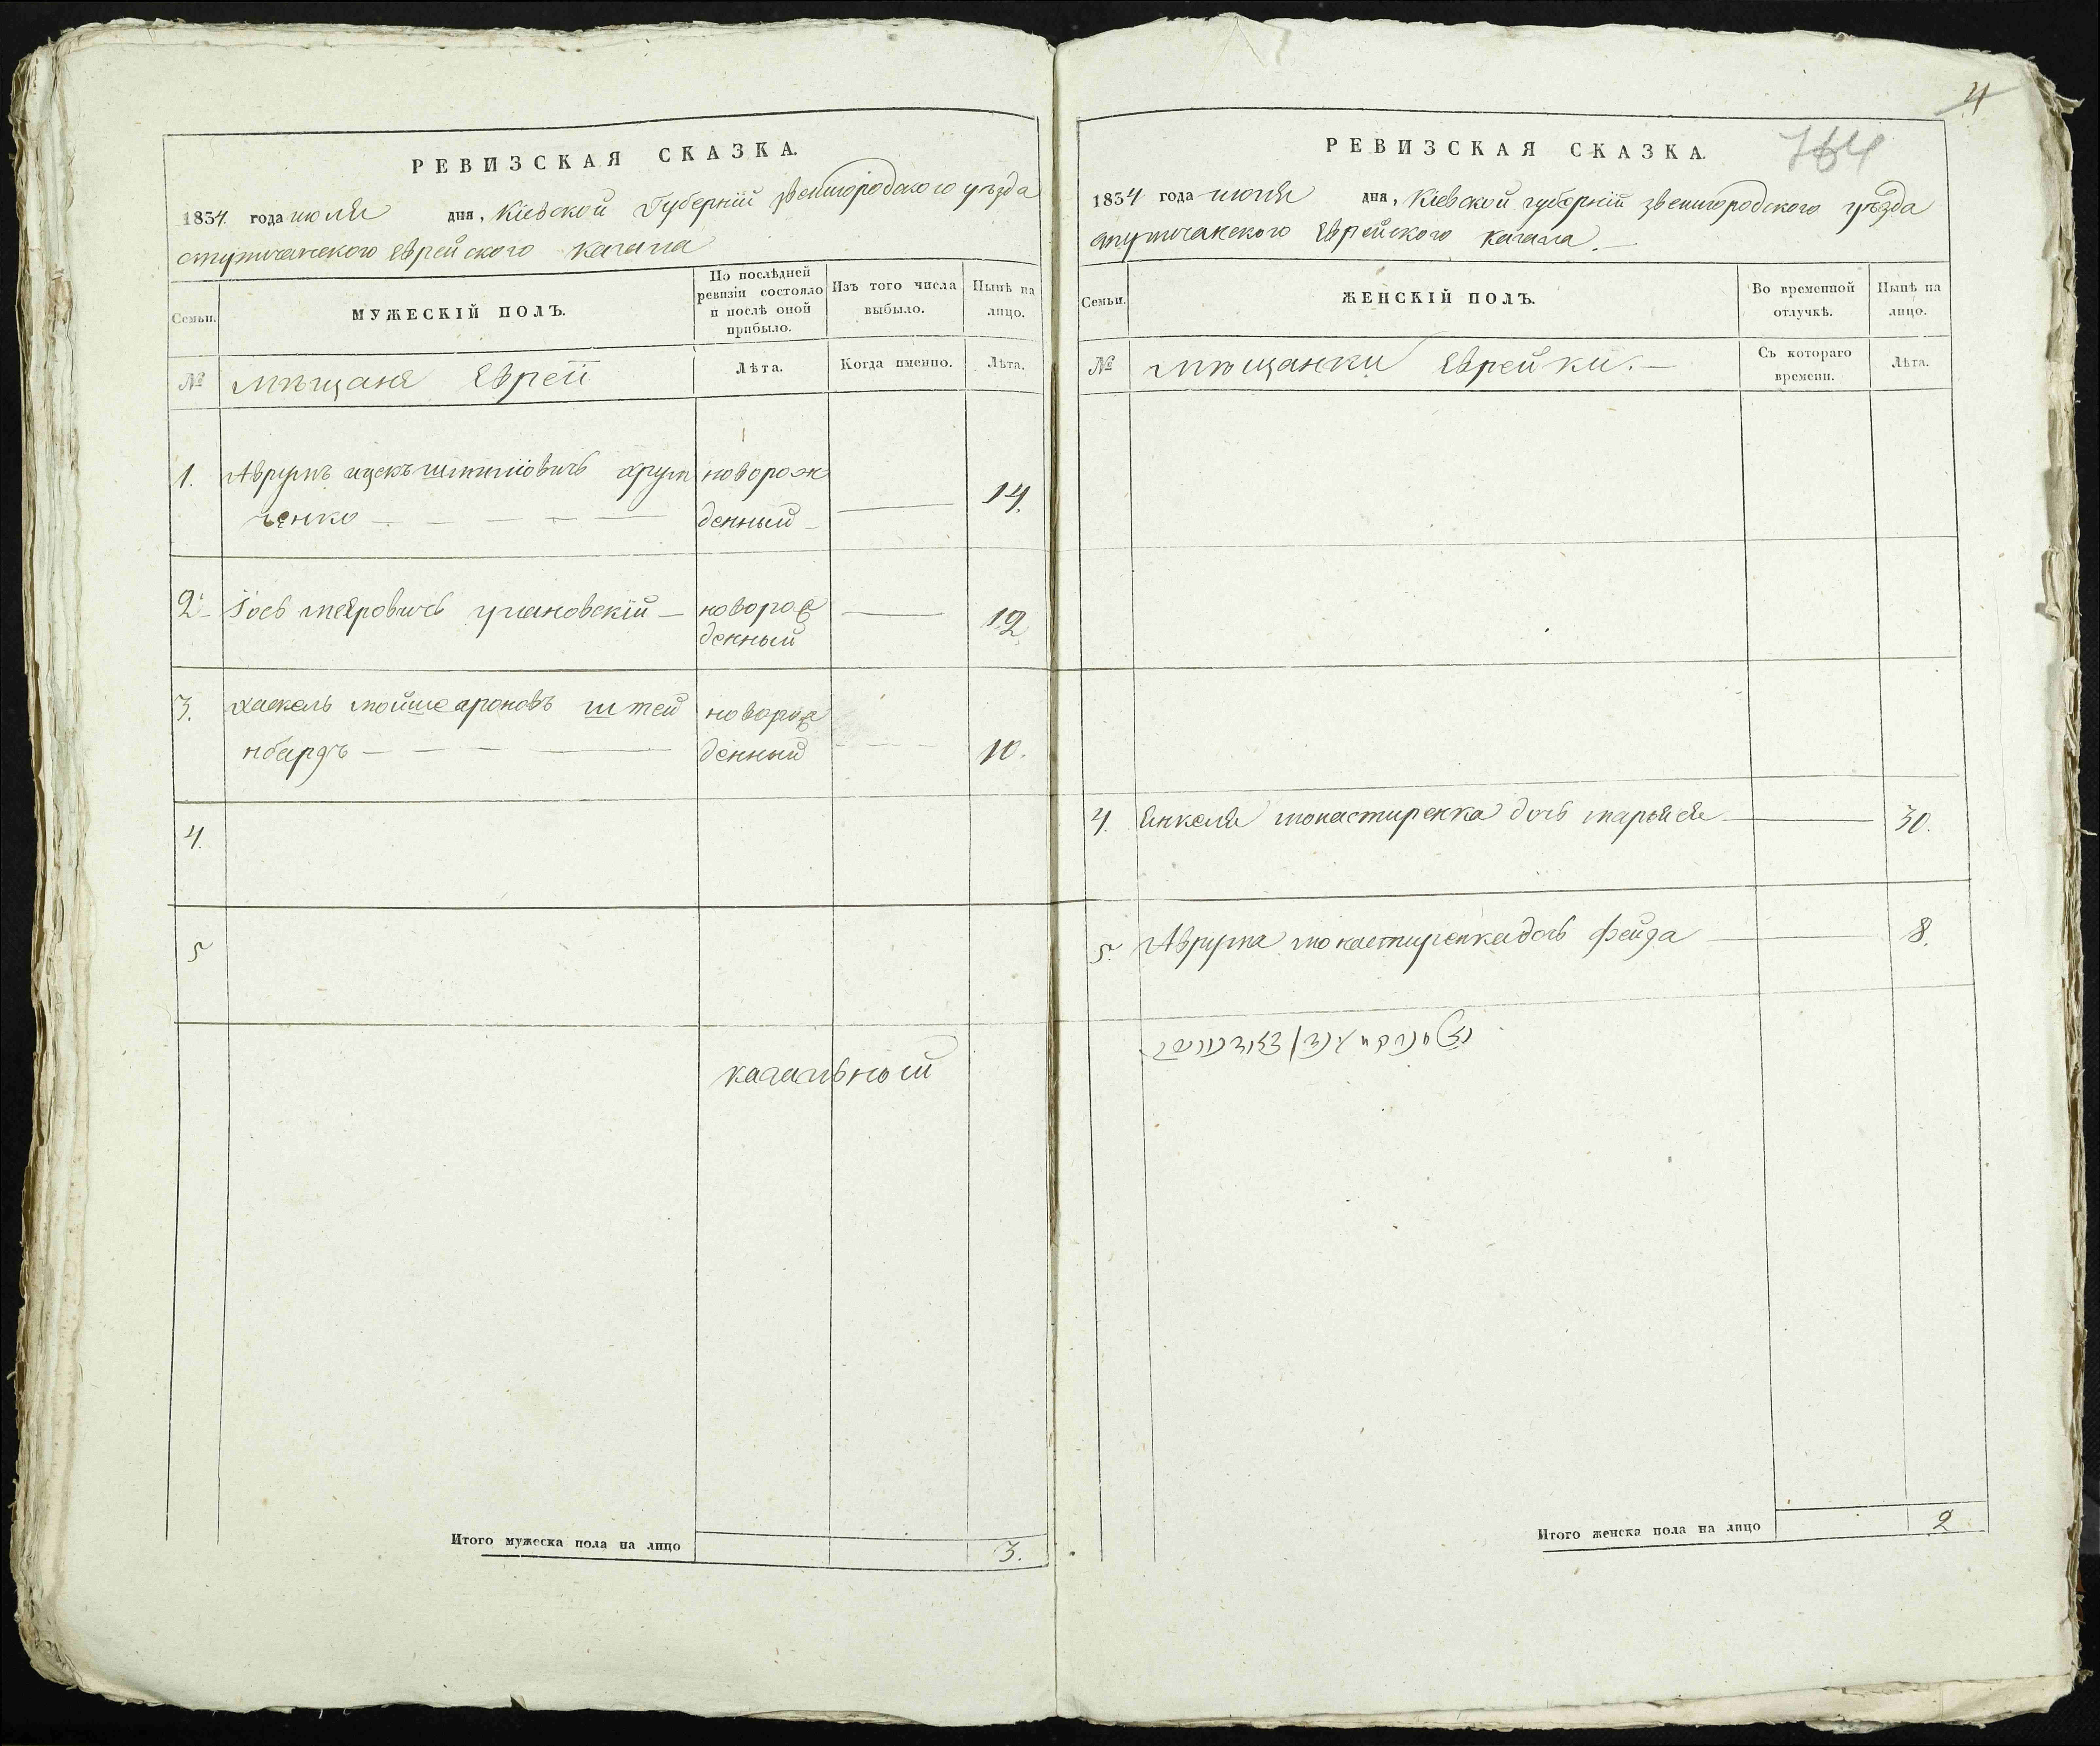 РЕВИЗСКАЯ СКАЗКА.
1834 года июля дня, Кіевской Губерніи звенигородского уѣзда
еврейского кагала
Семьи. МУЖЕСКІЙ ПОЛЪ. По послѣдней ревизіи состояло и послѣ оной прибыло. Изъ того числа выбыло. Нынѣ на лицо.
№ мѣщане Евреи Лѣта. Когда именно. Лѣта.
1. Аврумъ ицекъ новорож
ченко денный 14.
2 Іось меяровичъ улановскій новорож 12
денный
3. хаскель мойше ароновъ штей новорож
нбаргъ денный 10.
4.
5
кагальный
Итого мужеска пола на лицо 3.
4
764
РЕВИЗСКАЯ СКАЗКА.
1834 года июля дня, Кіевской губерніи звенигородского уѣзда
Еврейского кагала.
Семьи. ЖЕНСКІЙ ПОЛЪ. Во временной отлучкѣ. Нынѣ на лицо.
№ мѣщанки Еврейки. Съ котораго времени. Лѣта.
4. Янкеля монастиренка дочь марьяся 30.
5. Аврума монастиренка дочь фейга 8.
Итого женска пола на лицо 2